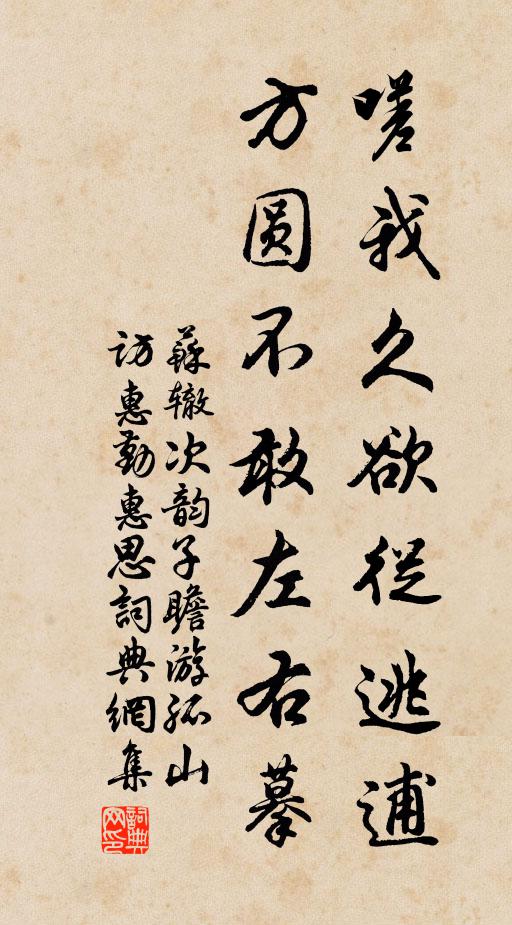 嗟我久欲從逃逋
方圆不敢左右摹
蘇辙次韵子瞻游孤山
訪惠勤惠思詞典網集
詞典网印